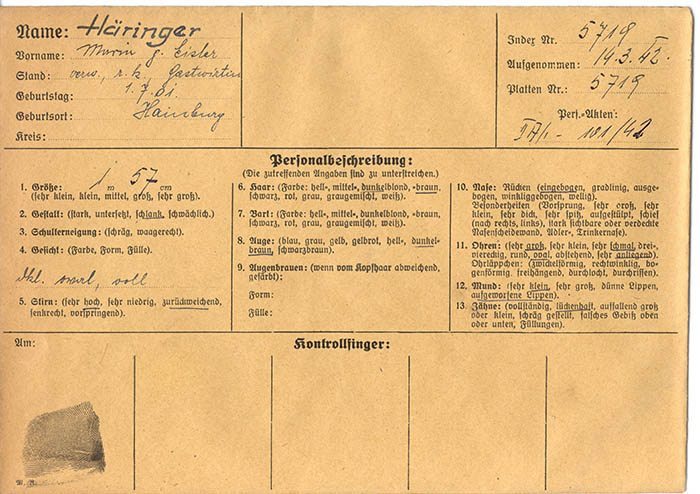 Name: Häringer
Vorname: Maria g. Eisler
Stand: verw., r. k., Gastwirtin
Geburtstag: 1.7.81.
Geburtsort: Hainburg
Kreis:
Index Nr. 5719
Aufgenommen: 14.3.42.
Platten Nr.: 5719
Pers.-Akten:
101/42
Personalbeschreibung:
(Die zutreffenden Angaben sind zu unterstreichen.)
1. Größe: 1 m 57 cm
(sehr klein, klein, mittel, groß, sehr groß).
2. Gestalt: (stark, untersetzt, schlank, schwächlich).
3. Schulterneigung: (schräg, waagerecht).
4. Gesicht: (Farbe, Form, Fülle).
dkl. oval, voll
5. Stirn: (sehr hoch, sehr niedrig, zurückweichend,
senkrecht, vorspringend).
6. Haar: (Farbe: hell-, mittel-, dunkelblond, -braun,
schwarz, rot, grau, graugemischt, weiß).
7. Bart: (Farbe: hell-, mittel-, dunkelblond, -braun,
schwarz, rot, grau, graugemischt, weiß).
8. Auge: (blau, grau, gelb, gelbrot, hell-, dunkel-
braun, schwarzbraun).
9. Augenbrauen: (wenn vom Kopfhaar abweichend,
gefärbt):
Form:
Fülle:
10. Nase: Rücken (eingebogen, gradlinig, ausge-
bogen, winkliggebogen, wellig).
Besonderheiten (Vorsprung, sehr groß, sehr
klein, sehr dick, sehr spitz, aufgestülpt, schief
(nach rechts, links), stark sichtbare oder verdeckte
Nasenscheidewand, Adler-, Trinkernase).
11. Ohren: (sehr groß, sehr klein, sehr schmal, drei-,
viereckig, rund, oval, abstehend, sehr anliegend).
Ohrläppchen: (zwickelförmig, rechtwinklig, bo-
genförmig, freihängend, durchlocht, durchrissen).
12. Mund: (sehr klein, sehr groß, dünne Lippen,
aufgeworfene Lippen).
13. Zähne: (vollständig, lückenhaft, auffallend groß
oder klein, schräg gestellt, falsches Gebiß oben
oder unten, Füllungen).
Am:
Kontrollfinger: